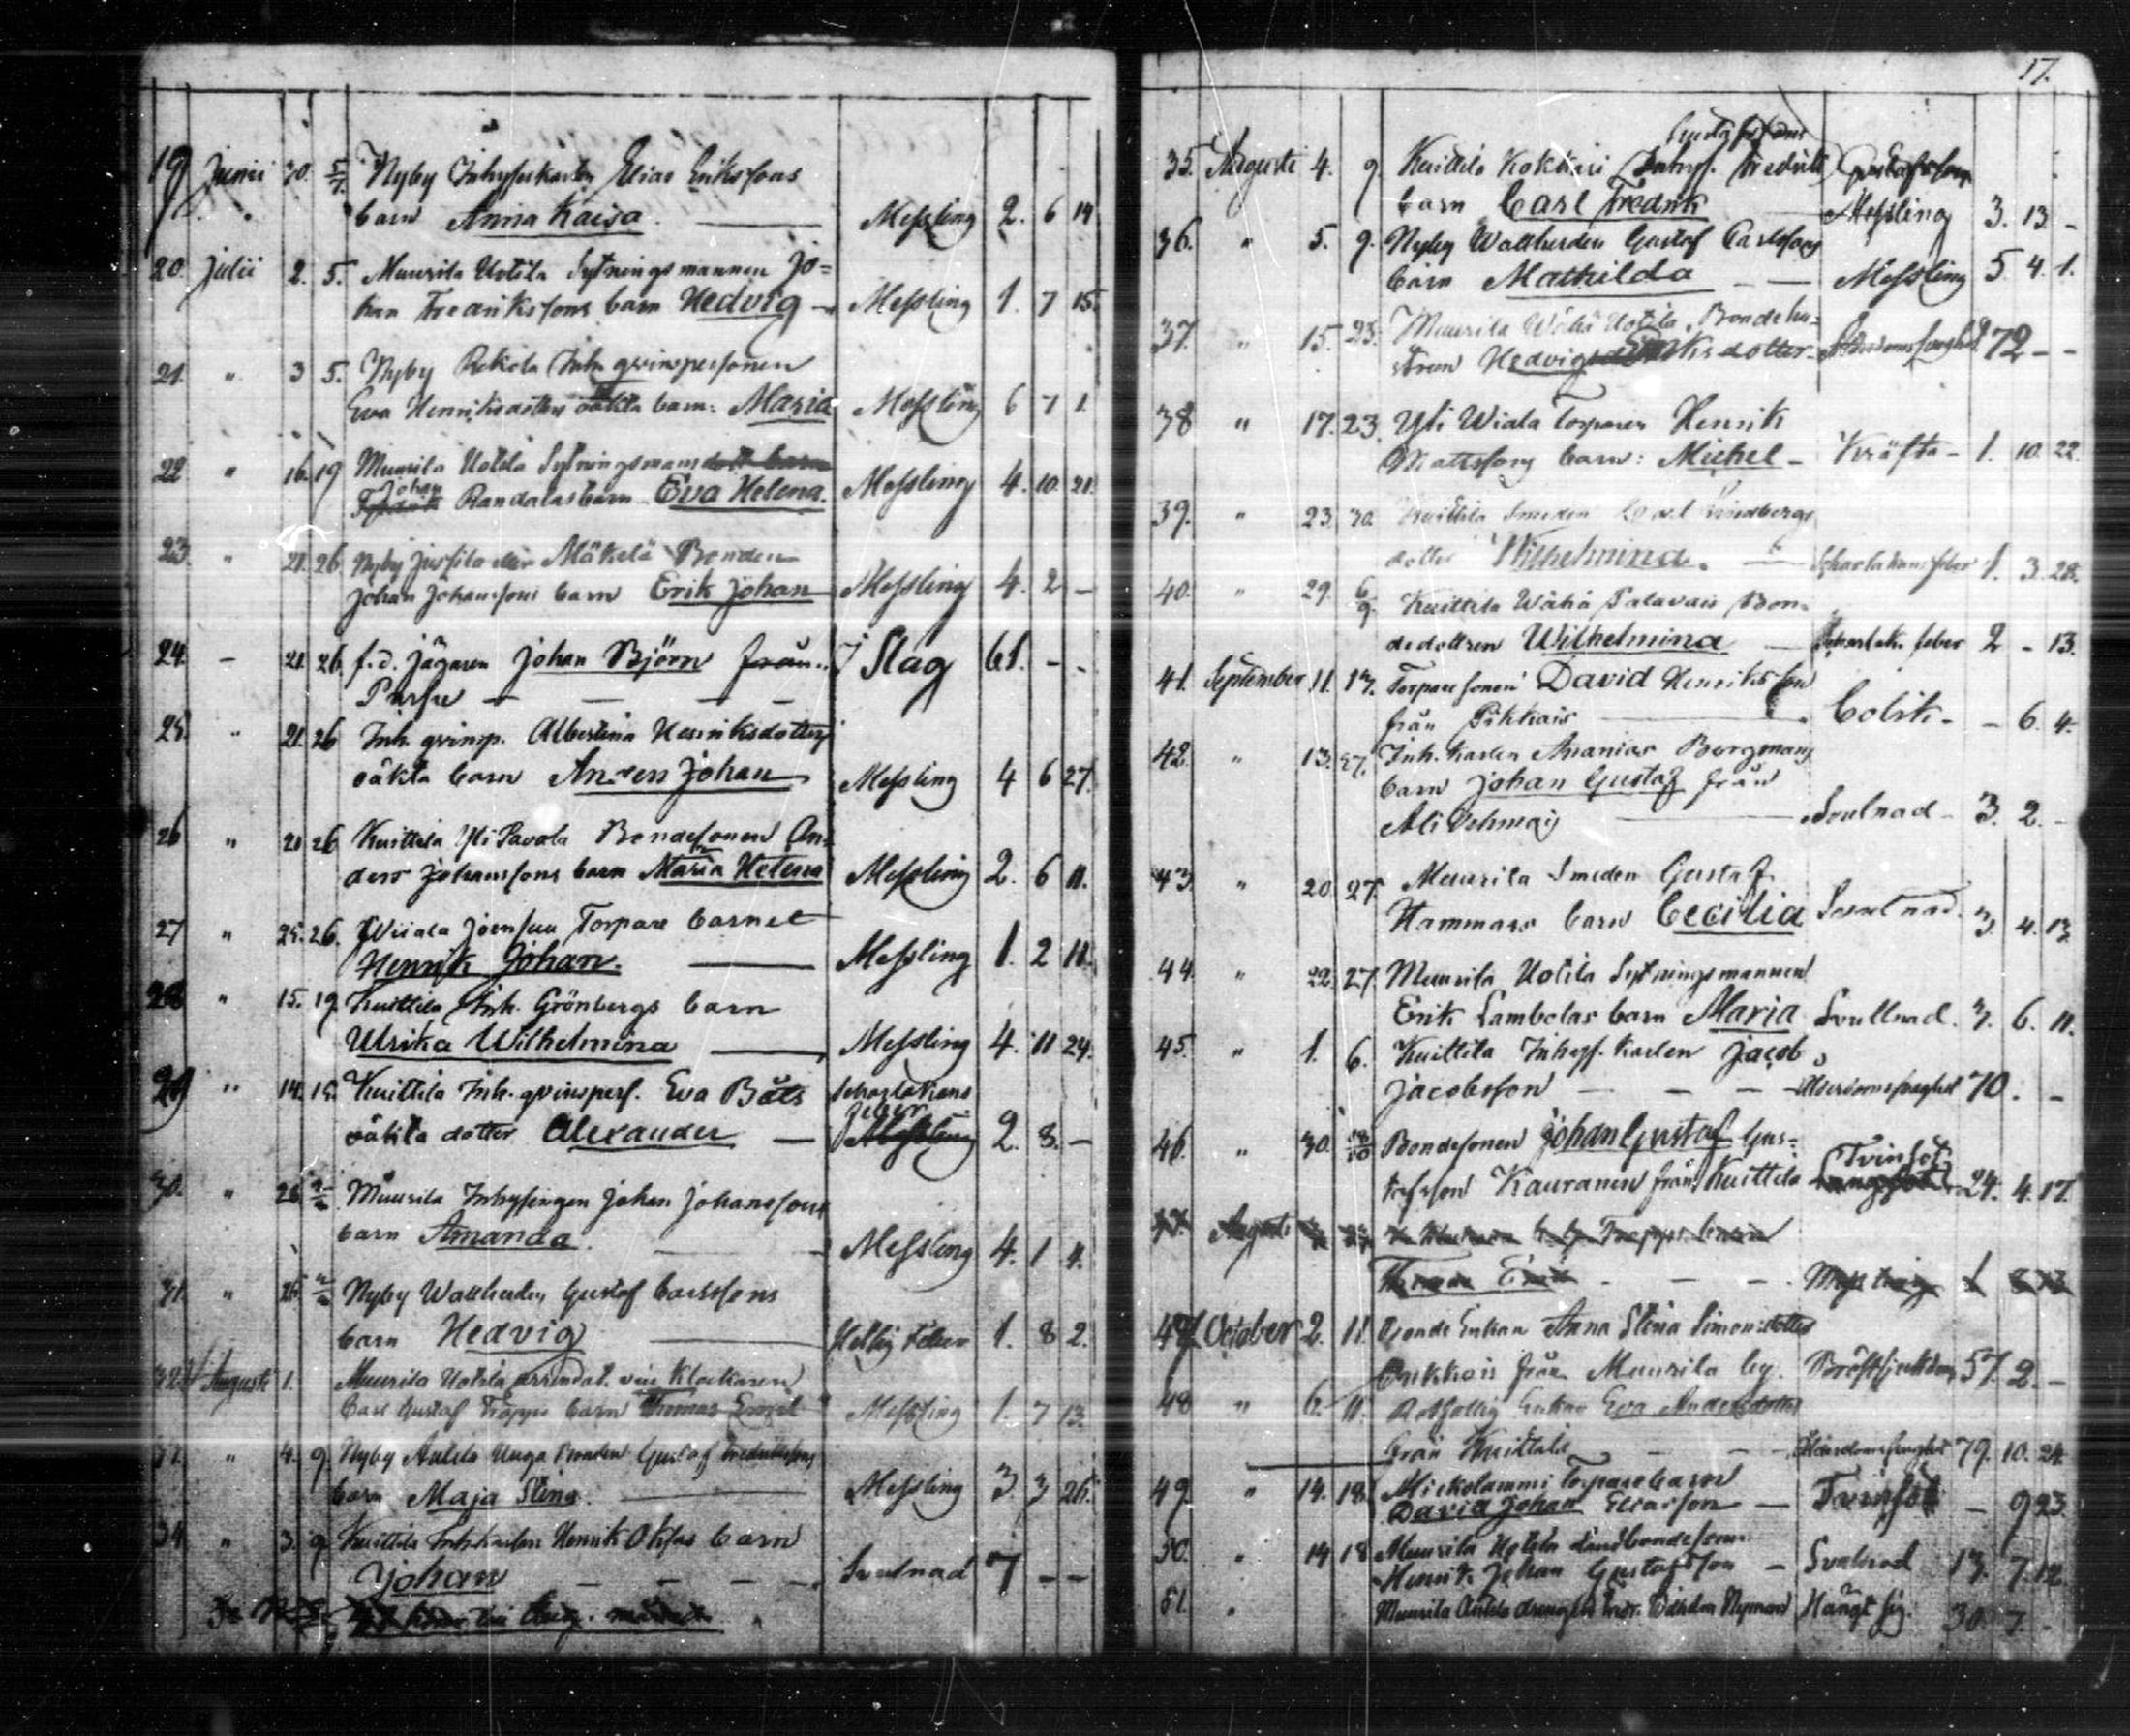 19 Junii 30. 5/7. Nyby Inhysekarlen Elias Erikssons
barn Anna Kaisa. Messling 2. 6 14
20. Julii 2. 5. Muurila Uotila Sytningsmannen Jo=
han Fredrikssons barn Hedvig Messling 1. 7 15.
21. " 3 5. Nyby Rekola Inh. qvinspersonen
Eva Henriksdotters oäkta barn: Maria Messling 6 7 1.
22 " 16. 19 Muurila Uotila Sytningsmans
Johan Randalas barn Eva Helena. Messling 4. 10. 21.
23. " 21. 26. Nyby Jussila eller Mäkelä Bonden
Johan Johanssons barn Erik Johan Messling 4. 2 -
24. - 21. 26. f.d. Jägaren Johan Björn från Slag 61. - -
25. " 21. 26 Inh. qvinsp. Albertina Henriksdotters
oäkta barn Anders Johan Messling 4 6 27.
26 " 21 26 Kuittila Yli Pavola Bondesonen An-
ders Johanssons barn Maria Helena Messling 2. 6 11.
27 " 25. 26. Wiiala Joensuu Torpare barnet
Henrik Johan. Messling 1. 2 11.
28 " 15. 19. Kuittila Inh. Grönbergs barn
Ulrika Wilhelmina Messling 4. 11 24.
29 " 14. 15. Kuittila Inh. qvinspers. Eva Båts Scharlakans
feber
oäkta dotter Alexander Messling 2. 8. -
30. " 26. Muurila Inhysingen Johan Johanssons
barn Amanda. Messling 4. 1 4.
31. " 26. Nyby Wallherden Gustaf Carlssons
barn Hedvig Hettig feber 1. 8 2.
32 Augusti 1. Muurila Uotila Klockaren
Carl Gustaf barn Thomas Emil Messling 1. 7 13.
" 4. 9. Nyby Anttila Unga Bonden Gustaf Fredrikssons
barn Maja Stina. Messling 3. 3 26.
34 " 3. 9. Kuittila Inh. karlen Henrik barn
Johan Svulnad 7 - -
17.
Gustafssons
35. Augusti 4. 9 Kuittila Kokkari Inhys. Fredrik Gustafsson
barn Carl Fredrik Messling 3. 13. -
36. " 5. 9. Nyby Wallherden Gustaf Carlssons
barn Mathilda Messling 5 4. 1.
37. " 15. 23. Muurila Wähä Uotila Bondehu-
strun Hedvig Eriksdotter Ålderdomssvaghet 72 - -
38 " 17. 23. Yli Wiala Torparen Henrik
Mattssons barn: Michel - Kräfta - 1. 10. 22.
39. " 23. 30. Kuittila Smeden Lindbergs
dotter Wilhelmina. Scharlakansfeber 1. 3. 28.
40. " 29. 6/9. Kuittila Wähä Palavais Bon-
dedottren Wilhelmina Scharlak. feber 2 - 13.
41. September 11. 13. Torparesonen David Henriksson
från Colik - - 6. 4.
42. " 13. 27. Inh. karlen Ananias Bergmans
barn Johan Gustaf från
Svulnad - 3. 2. -
43 " 20. 27. Muurila Smeden Gustaf
Hammars barn Cecilia Svulnad. 3. 4. 13.
44. " 22. 27. Muurila Uotila Sytningsmannen
Erik Lambolas barn Maria Svullnad. 3. 6. 11.
45. " 1. 6. Kuittila Inhys. karlen Jacob
Jacobsson Ålderdomssvaghet 70. -
46. " 30. Bondesonen Johan Gustaf Gus-
tafsson Kauranen från Kuittila Tvinsot 24. 4. 17.
Augusti Messling
47. October 2. 11. Bonde Enkan Anna Stina Simonsdotter
från Muurila by. Bröstsjukdom 57. 2. -
48 " 6. 11. Rotfattig Enkan Eva Andersdotter
från Kuittila Ålderdomssvaghet 79. 10. 24.
49. " 14. 18. Mickolammi Torpare barnet
David Johan Tvinsot - 9 23.
50. " 14 18 Muurila Uotila Landbondeson
Henrik Johan Gustafsson - Svulnad 13. 7. 12.
51. " Muurila Anttila drängen Nyman Hängt sig. 30. 7. -